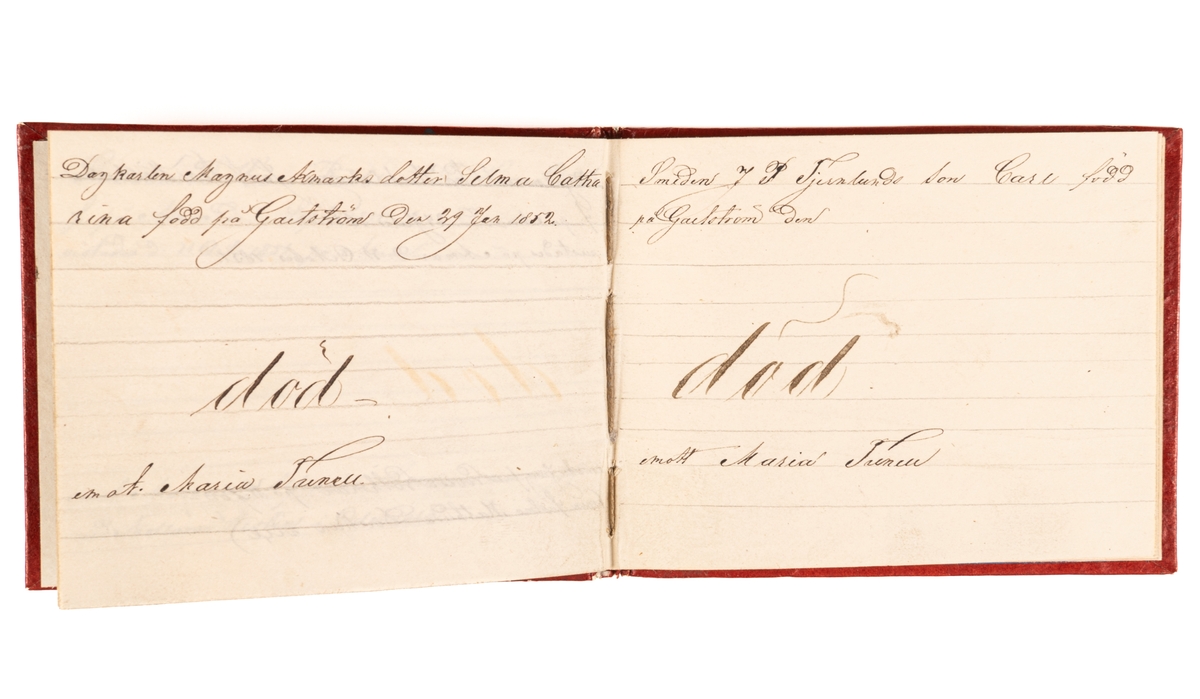 Dagkarlen Magnus Almarks dotter Selma Catha
rina född på Gaelström Den 29 Jan 1852.
död
emot. Maria Trenell.
Smeden J P Tjernlunds son Carl född
på Gaelström den
död
emott Maria Trenell